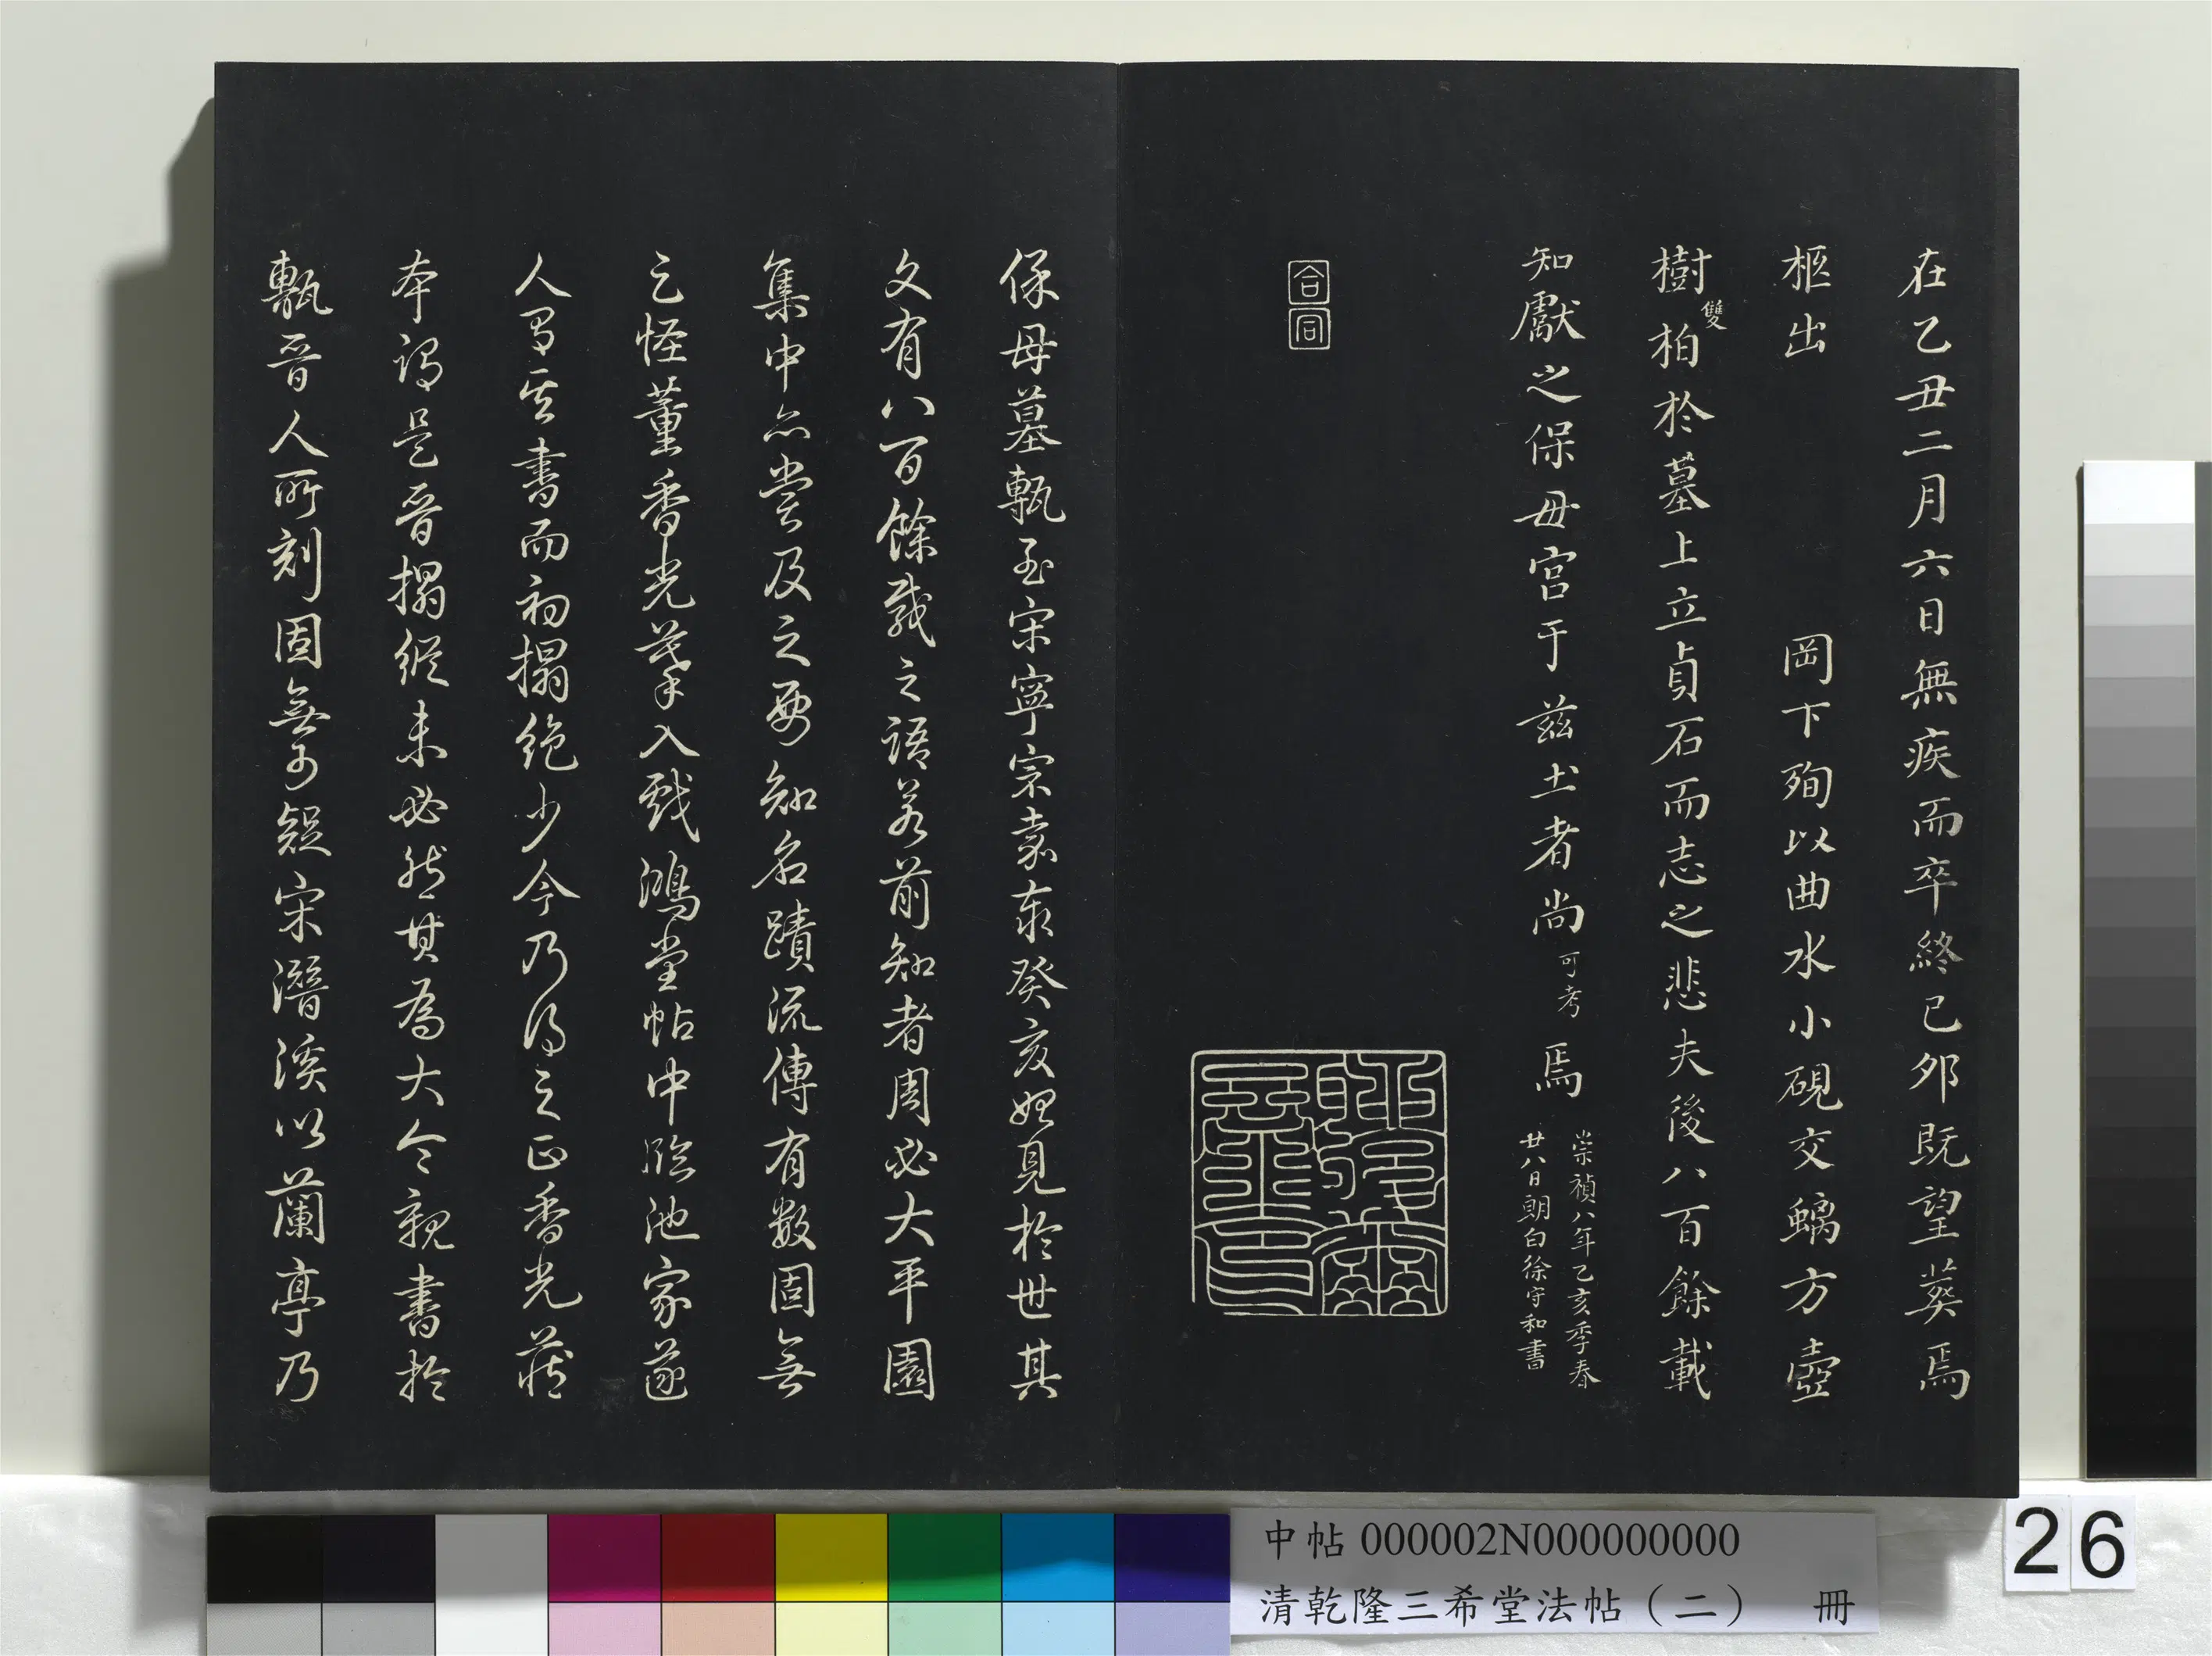 在乙丑二月六日無疾而卒終已夘既望葬焉
柩出 岡下殉以曲水小硯交螭方壺
樹雙柏於墓上立貞石而志之悲夫後八百餘載
知獻之保母宫于兹土者尚可考焉
崇禎八年乙亥季春
廿八日朗白徐守和書
合同
保母墓甎至宋寧宗嘉泰癸亥始見於世其
文有八百餘載之語若前知者周必大平園
集中亦嘗及之要知名蹟流傳有數固無
足怪董香光摹入戲鴻堂帖中臨池家遂
人習其書而初搨絶少今乃得之正香光藏
本謂是晉搨縱未必然其為大令親書於
甎晉人所刻固無可疑宋潛溪以蘭亭乃
中帖 000002N000000000
清乾隆三希堂法帖（二） 冊
26